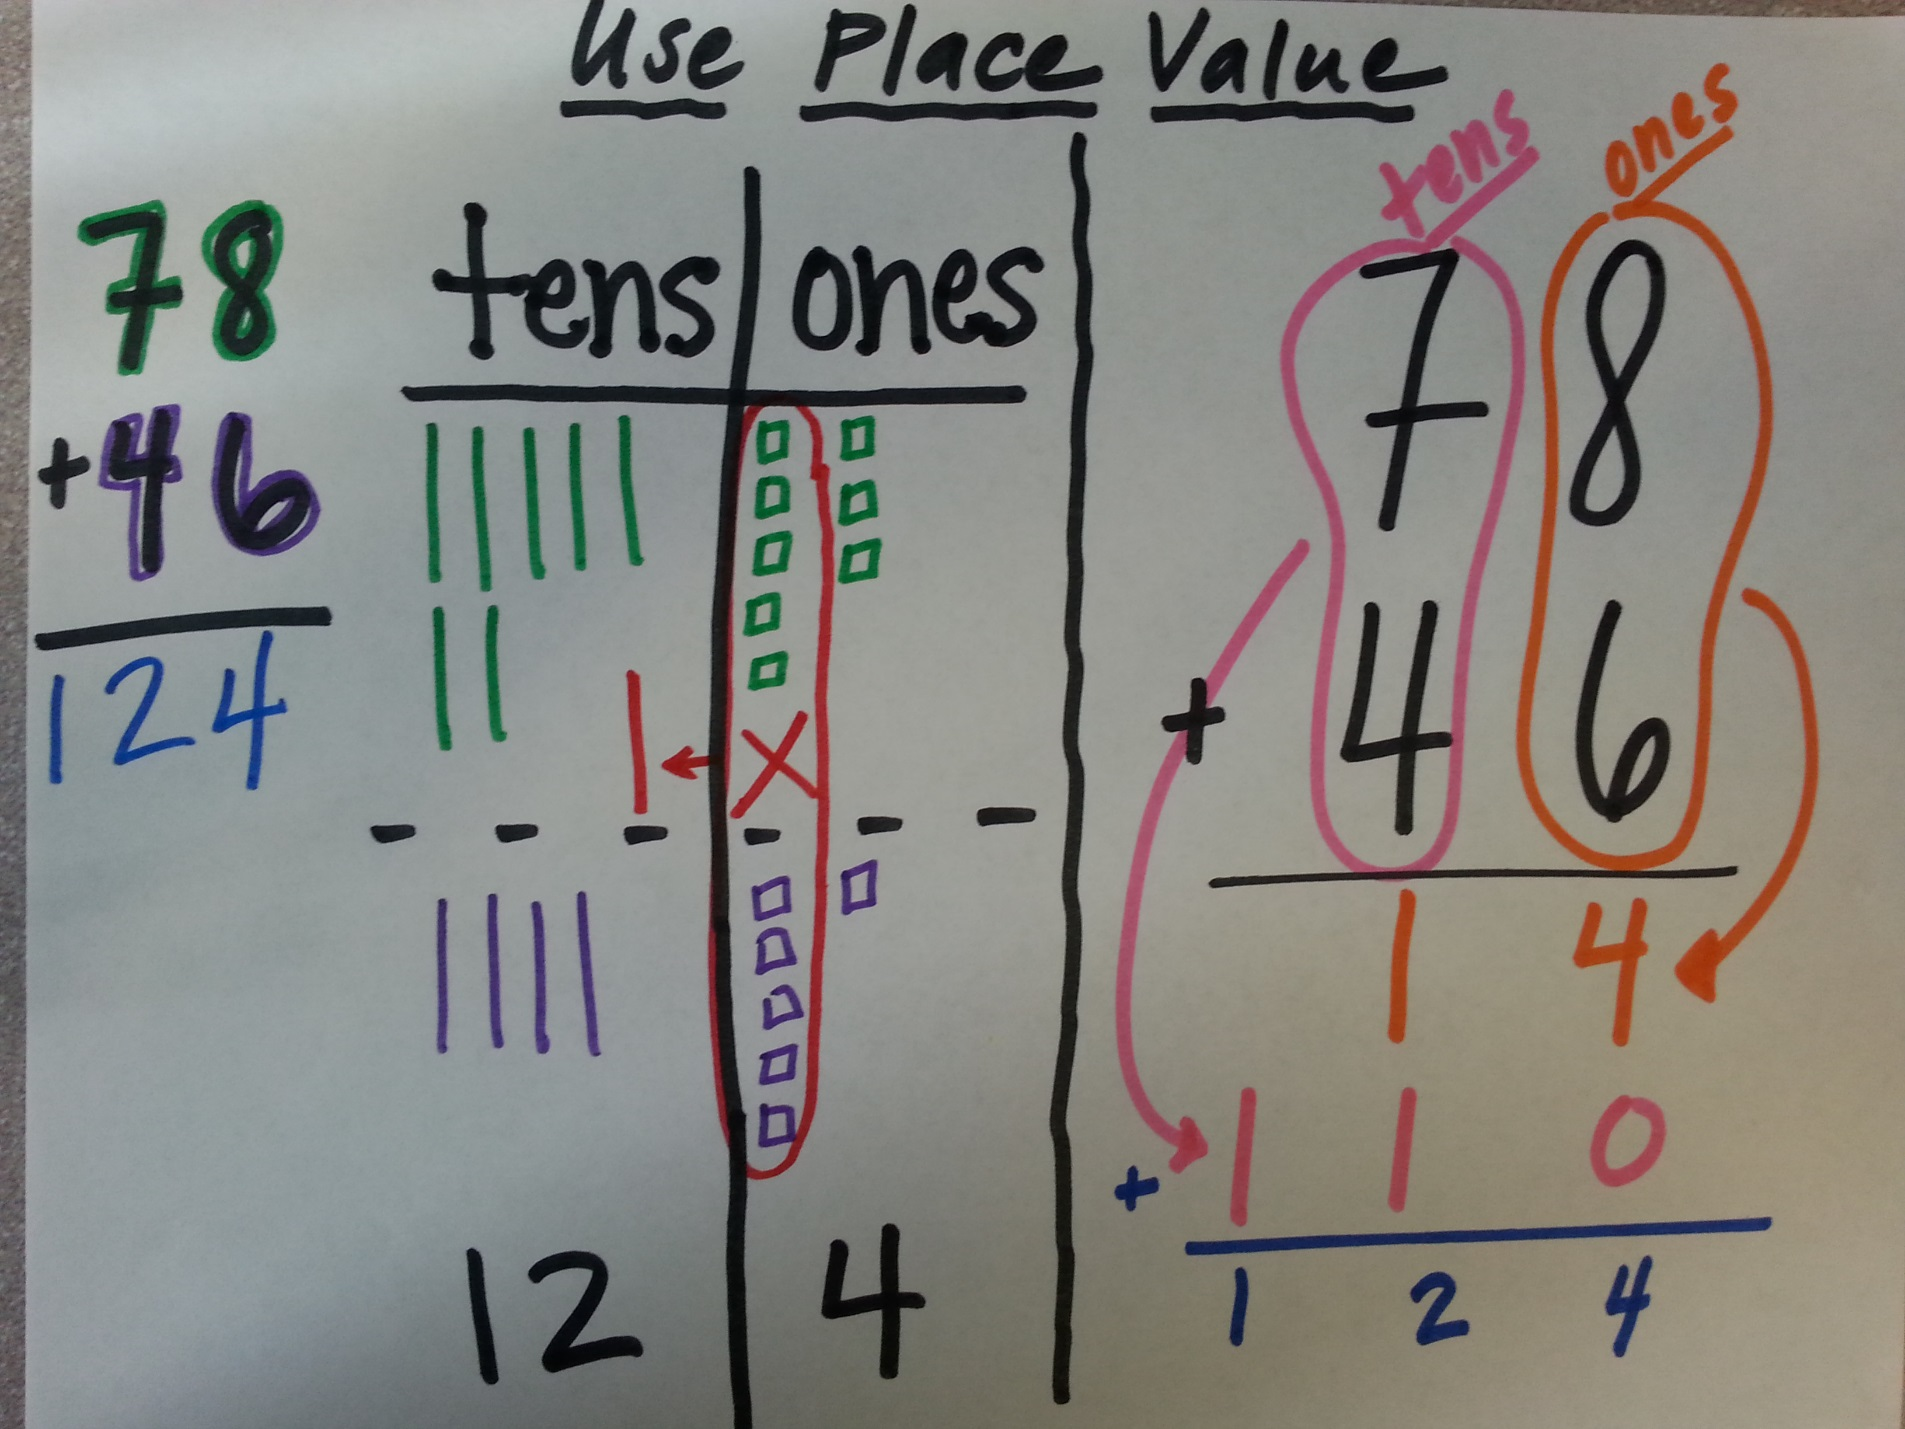 Use Place Value
78
+46
124
tens ones
12 4
tens ones
7 8
+ 4 6
1 4
+ 1 1 0
1 2 4